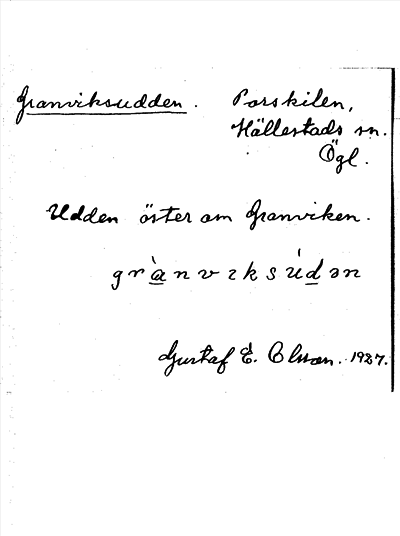 Granviksudden. Porskilen,
Hällestads sn.
Ögl.
Udden öster om Granviken.
grànvɪksúdən
Gustaf E. Olsson. 1927.